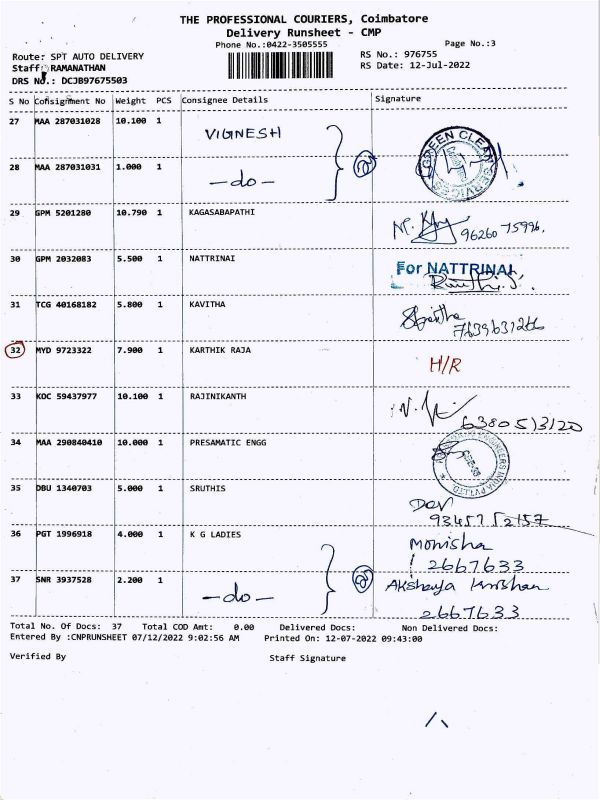 THE PROFESSIONAL COURIERS, Coimbatore
Delivery Runsheet - CMP
Phone No.:0422-3505555 Page No.:3
Route: SPT AUTO DELIVERY RS No.: 976755
Staff: RAMANATHAN RS Date: 12-Jul-2022
DRS No.: DCJB97675503
S No Consignment No Weight PCS Consignee Details Signature
27 MAA 287031028 10.100 1 VIGNESH
28 MAA 287031031 1.000 1 —do— GREEN CLEAN SERVICES
29 GPM 5201280 10.790 1 KAGASABAPATHI 96260 75996.
30 GPM 2032083 5.500 1 NATTRINAI For NATTRINAI
31 TCG 40168182 5.800 1 KAVITHA
32 MYD 9723322 7.900 1 KARTHIK RAJA H/R
33 KOC 59437977 10.100 1 RAJINIKANTH
34 MAA 290840410 10.000 1 PRESAMATIC ENGG
35 DBU 1340703 5.000 1 SRUTHIS Dev
36 PGT 1996918 4.000 1 K G LADIES Monisha
2667633
37 SNR 3937528 2.200 1 —do— Akshaya
2667633
Total No. Of Docs: 37 Total COD Amt: 0.00 Delivered Docs: Non Delivered Docs:
Entered By :CNPRUNSHEET 07/12/2022 9:02:56 AM Printed On: 12-07-2022 09:43:00
Verified By Staff Signature